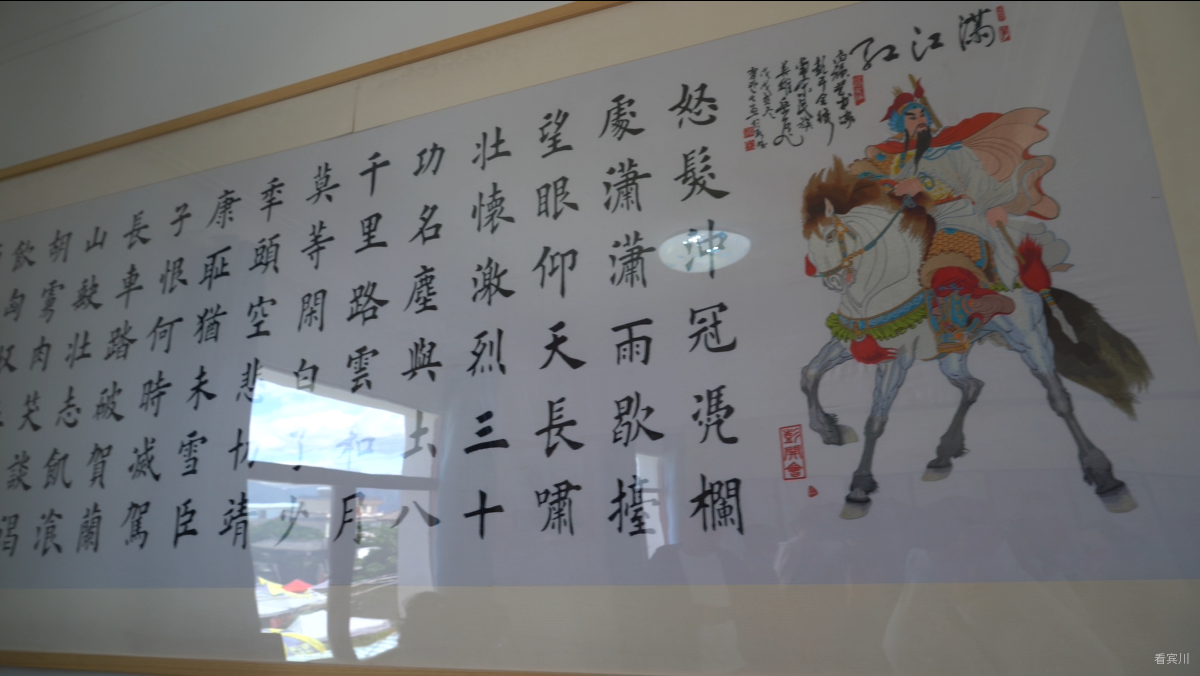 滿江红
怒髮沖冠凴欄
處瀟瀟雨歇擡
望眼仰天長嘯
壯懷激烈三十
功名塵與土八
千里路雲和月
莫等閑白了少
秊頭空悲切靖
康耻猶未雪臣
子恨何時滅駕
長車踏破賀蘭
山缺壯志飢飡
胡虜肉笑談渴
飲匈奴
看宾川